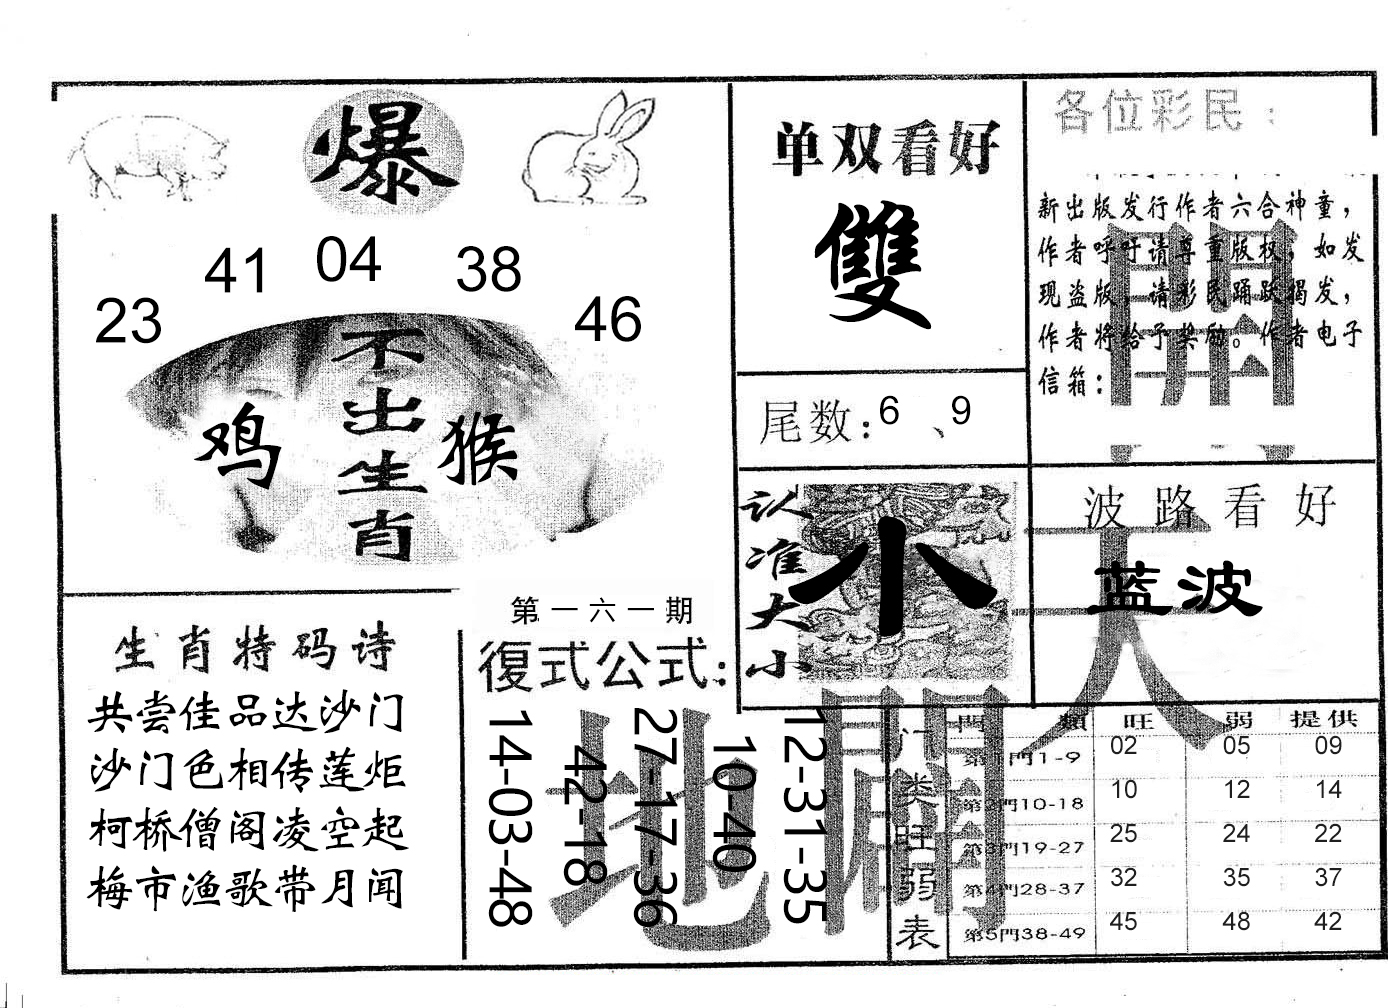 爆
23 41 04 38 46
不出生肖
鸡 猴
单双看好
雙
尾数:6、9
各位彩民:
新出版发行作者六合神童,
作者呼吁请尊重版权,如发
现盗版,请彩民踊跃揭发,
作者将给予奖励。作者电子
信箱:
開
认准大小
小
波路看好
蓝波
天
生肖特码诗
共尝佳品达沙门
沙门色相传莲炬
柯桥僧阁凌空起
梅市渔歌带月闻
第一六一期
復式公式:
14-03-48
42-18
27-17-36
10-40
12-31-35
地
門类旺弱表
門類 旺 弱 提供
第1門1-9 02 05 09
第2門10-18 10 12 14
第3門19-27 25 24 22
第4門28-37 32 35 37
第5門38-49 45 48 42